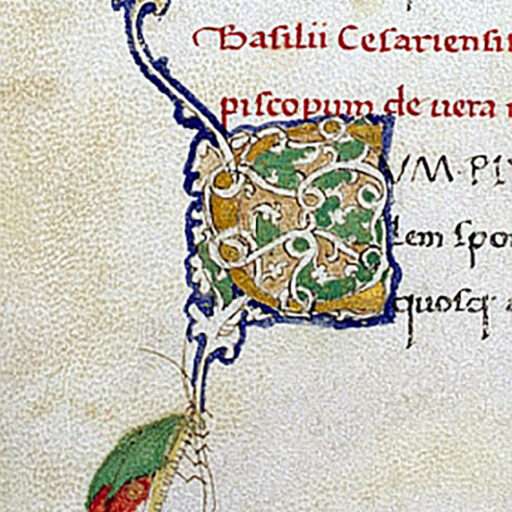 Basilii Cesariensis
piscopum de uera
CVM · PL
lem spo
quosq